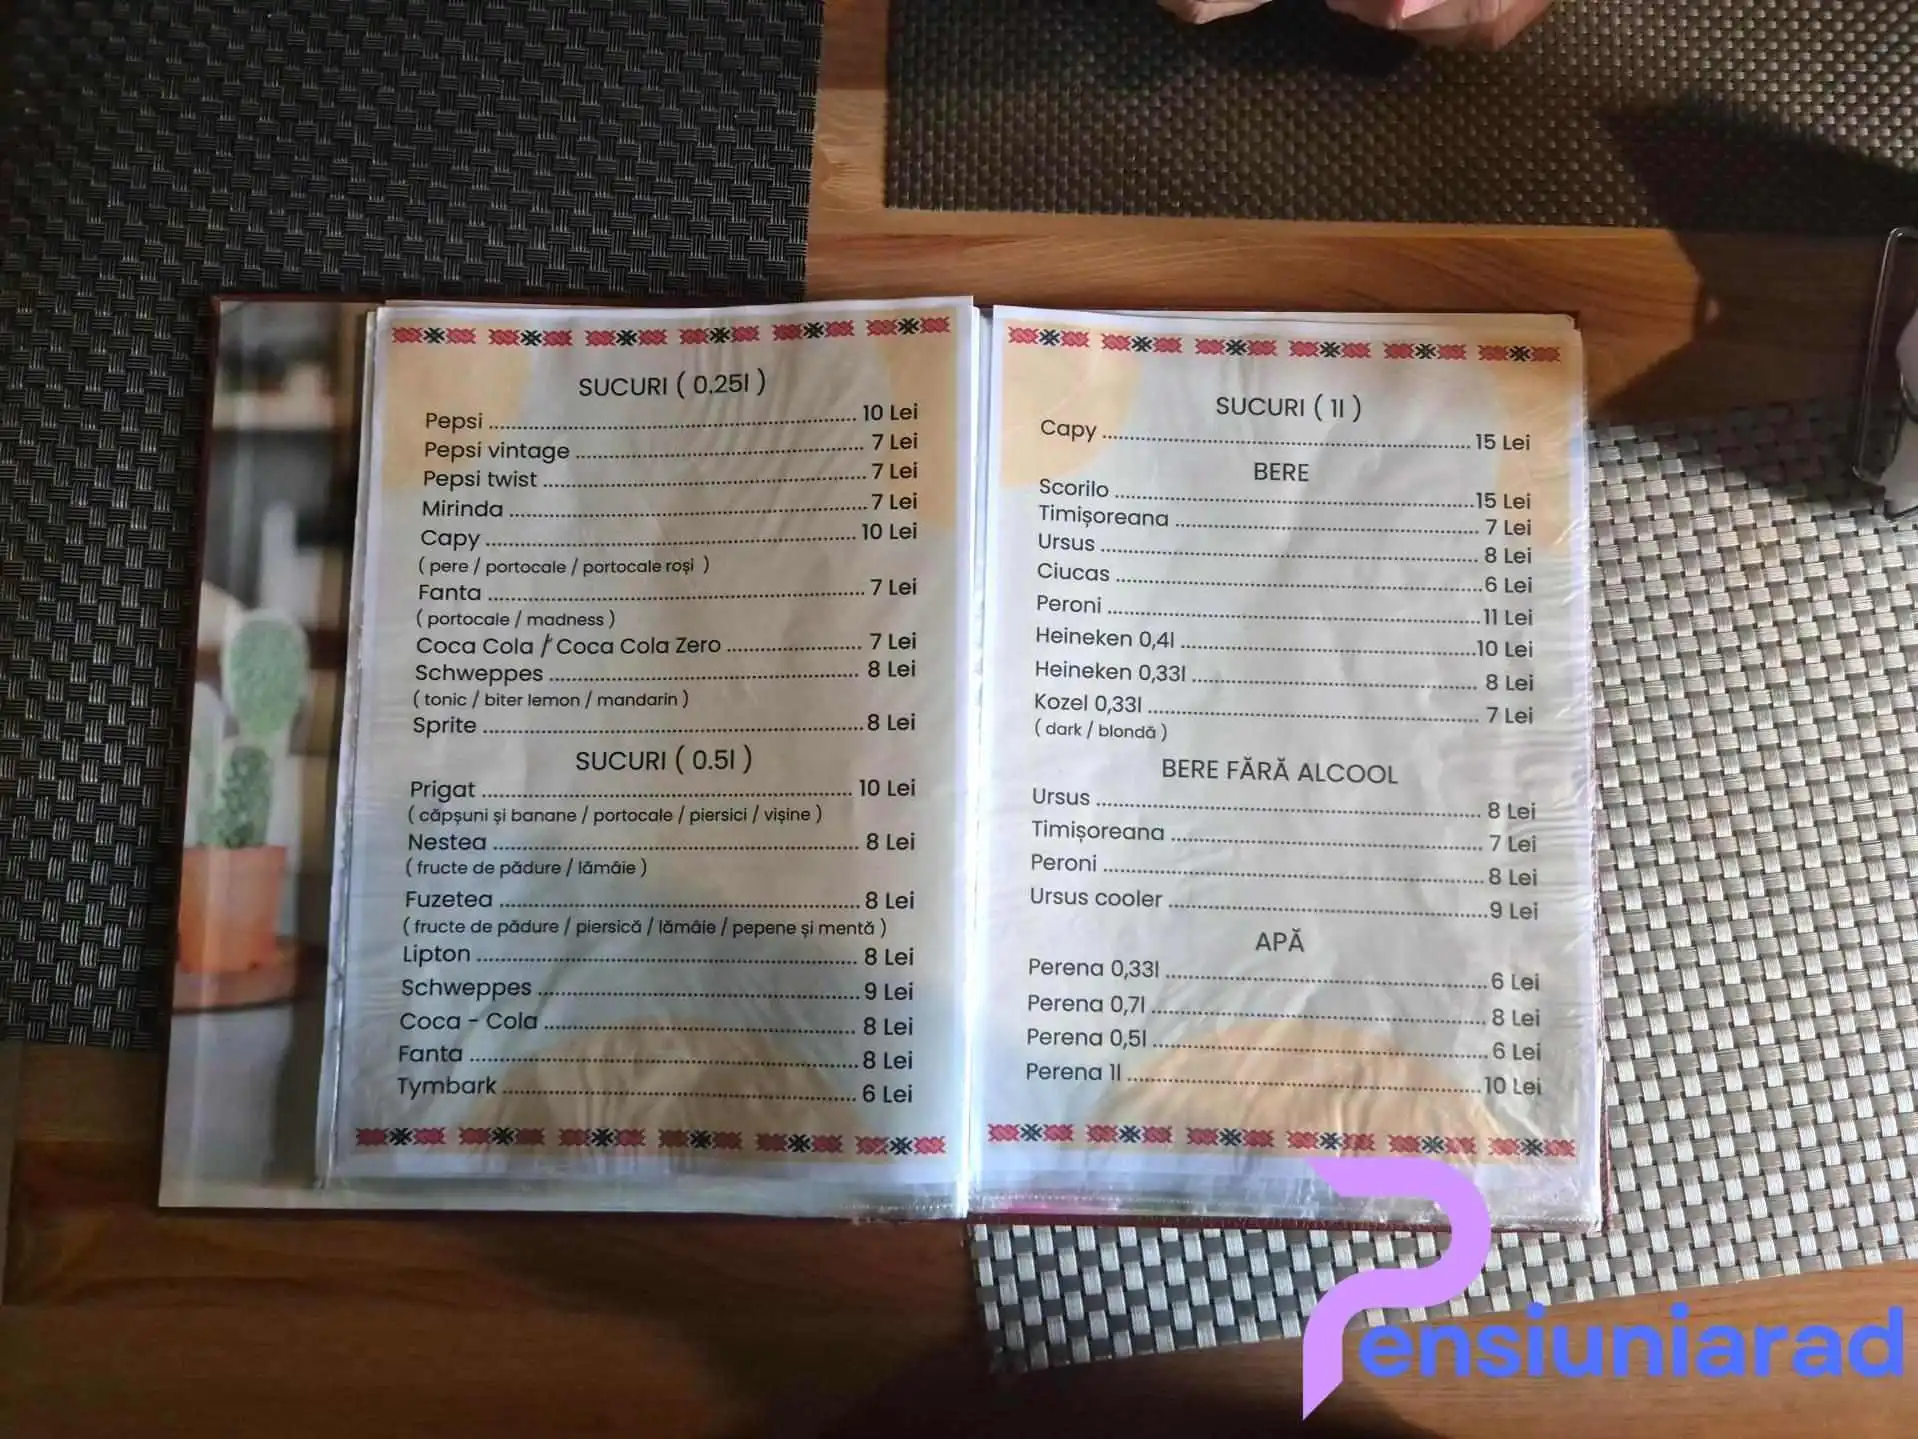 SUCURI ( 0.25l )
Pepsi ........ 10 Lei
Pepsi vintage ........ 7 Lei
Pepsi twist ........ 7 Lei
Mirinda ........ 7 Lei
Capy ........ 10 Lei
( pere / portocale / portocale roși )
Fanta ........ 7 Lei
( portocale / madness )
Coca Cola / Coca Cola Zero ........ 7 Lei
Schweppes ........ 8 Lei
( tonic / biter lemon / mandarin )
Sprite ........ 8 Lei
SUCURI ( 0.5l )
Prigat ........ 10 Lei
( căpșuni și banane / portocale / piersici / vișine )
Nestea ........ 8 Lei
( fructe de pădure / lămâie )
Fuzetea ........ 8 Lei
( fructe de pădure / piersică / lămâie / pepene și mentă )
Lipton ........ 8 Lei
Schweppes ........ 9 Lei
Coca - Cola ........ 8 Lei
Fanta ........ 8 Lei
Tymbark ........ 6 Lei
SUCURI ( 1l )
Capy ........ 15 Lei
BERE
Scorilo ........ 15 Lei
Timișoreana ........ 7 Lei
Ursus ........ 8 Lei
Ciucas ........ 6 Lei
Peroni ........ 11 Lei
Heineken 0,4l ........ 10 Lei
Heineken 0,33l ........ 8 Lei
Kozel 0,33l ........ 7 Lei
( dark / blondă )
BERE FĂRĂ ALCOOL
Ursus ........ 8 Lei
Timișoreana ........ 7 Lei
Peroni ........ 8 Lei
Ursus cooler ........ 9 Lei
APĂ
Perena 0,33l ........ 6 Lei
Perena 0,7l ........ 8 Lei
Perena 0,5l ........ 6 Lei
Perena 1l ........ 10 Lei
Pensiuniarad